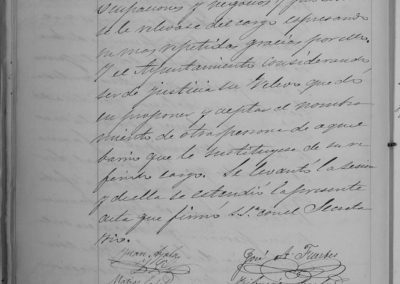 ocupaciones y negocios y que
se le relevase del cargo expresando
mas repetidas gracias por ello.
Y el Ayuntamiento considerando
ser de justicia su relevo quedó
en proponer y aceptar el nombra
miento de otra persona de aquel
barrio que le sustituyese de su re
ferido cargo. Se levantó la sesion
y de ella se estendió la presente
acta que firmó S.S. con el Secreta
rio.
Juan Ayala
José A. Fuertes